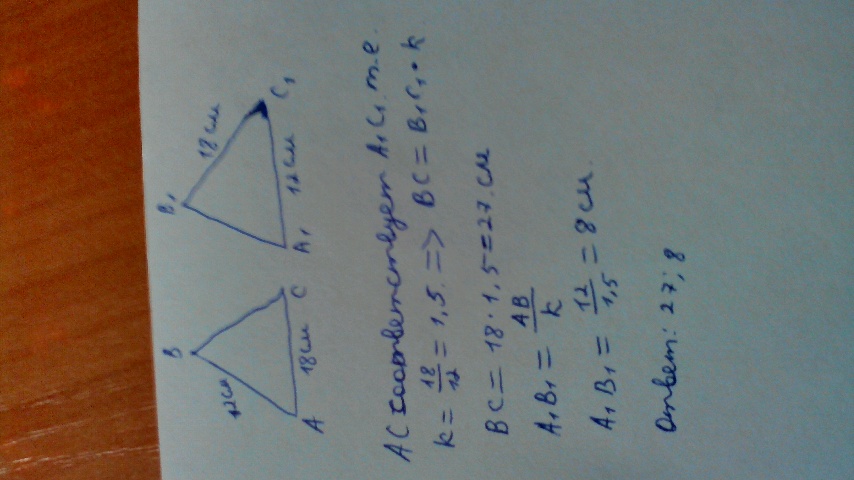 B
12см
A
18см
C
B₁
18см
A₁
12см
C₁
AC соответствует A₁C₁ т.е.
k = 18/12 = 1,5. => BC = B₁C₁ · k
BC = 18 · 1,5 = 27 см
A₁B₁ = AB/k
A₁B₁ = 12/1,5 = 8 см.
Ответ: 27; 8